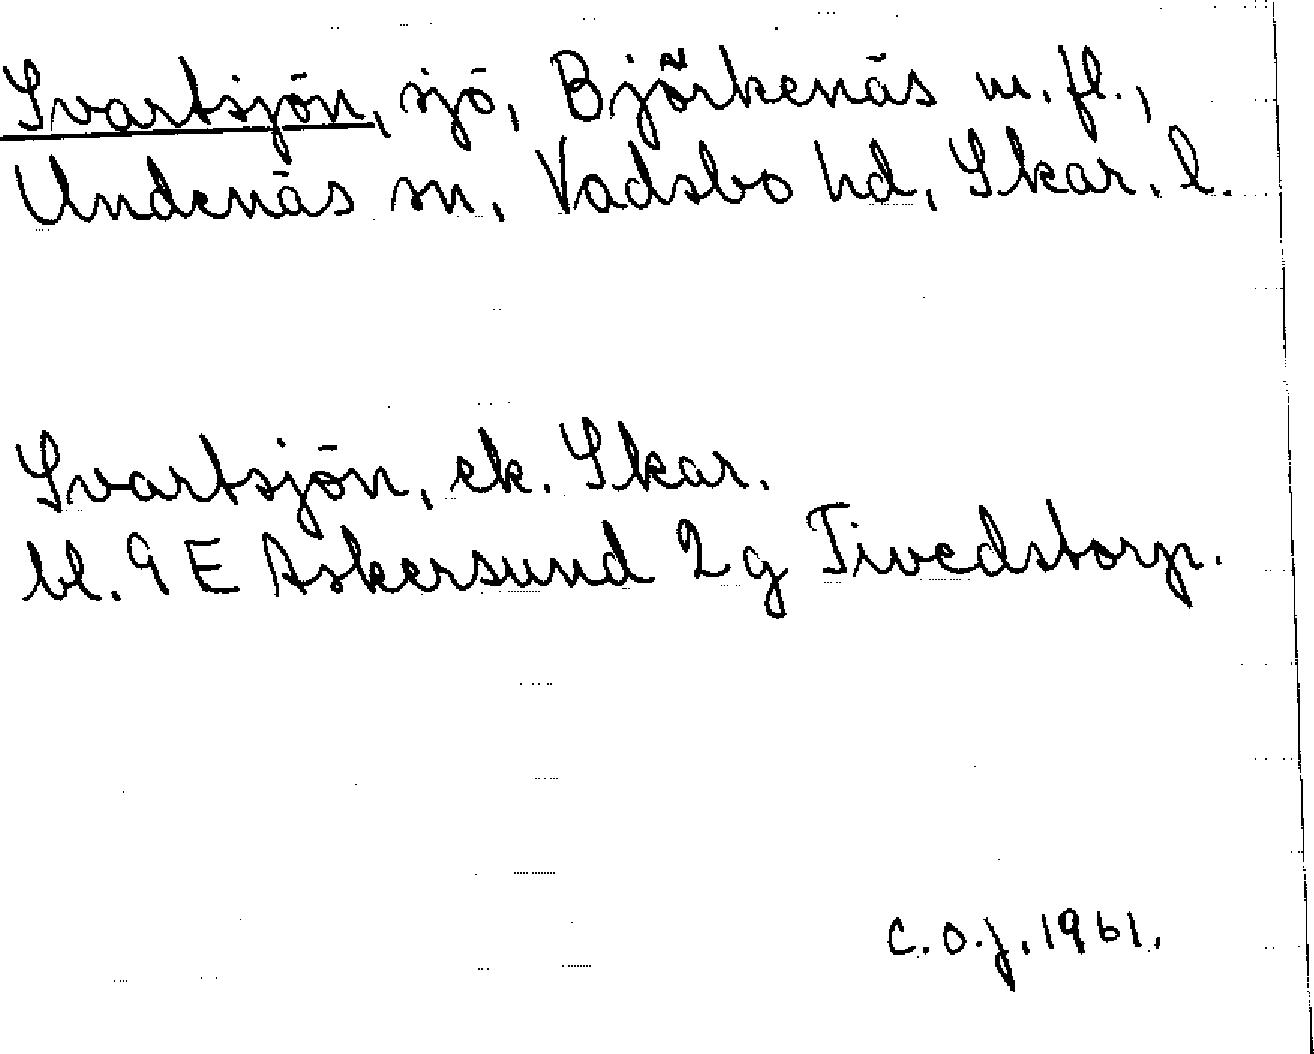 Svartsjön, sjö, Björkenäs m. fl.,
Undenäs sn, Vadsbo hd, Skar. l.
Svartsjön, ek. Skar.
bl. 9 E Askersund 2 g Tivedstorp.
C.O.J. 1961.